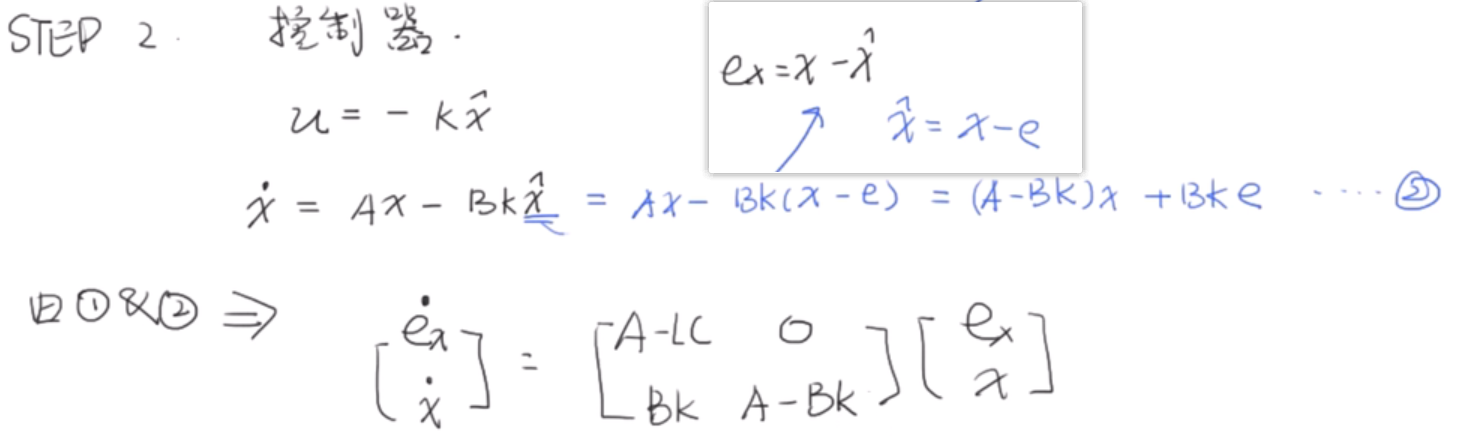 STEP 2. 控制器.
eₓ = x - x̂
u = - kx̂
x̂ = x - e
ẋ = Ax - Bkx̂ = Ax - Bk(x - e) = (A-Bk)x + Bke ····· ②
由①&②⇒
[ėₓ ẋ] = [A-LC 0 Bk A-Bk] [eₓ x]